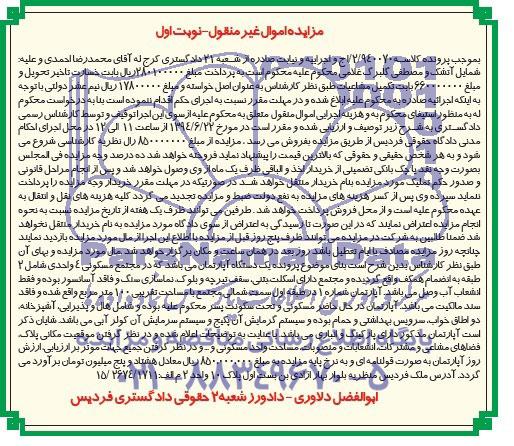 مزایده اموال غیر منقول-نوبت اول
بموجب پرونده کلاسه ۲/۹۴۰۰۷۰/ج و اجراییه و نیابت صادره از شعبه ۲۱ دادگستری کرج له آقای محمدرضا احمدی و علیه:
شمایل آتشک و مصطفی گلبرگ غلامی محکوم علیه محکوم است به پرداخت مبلغ ۲۸۰۱۰۰۰۰۰۰ ریال بابت خسارت تاخیر تحویل و
مبلغ ریال بابت تکمیل مشاعیات طبق نظر کارشناس به عنوان اصل خواسته و مبلغ ۱۷۸۰۰۰۰۰۰ ریال نیم عشر دولتی با توجه
به اینکه اجرائیه صادره به محکوم علیه ابلاغ شده و در مهلت مقرر نسبت به اجرای حکم اقدام ننموده است بنا به درخواست محکوم
له به منظور استیفای محکوم به و هزینه اجرایی اموال منقول متعلق به محکوم علیه از سوی این اجرا توقیف و توسط کارشناس رسمی
دادگستری به شرح زیر توصیف و ارزیابی شده و مقرر است در مورخ ۱۳۹۴/۶/۲۲ از ساعت ۱۱ الی ۱۲ در محل اجرای احکام
مدنی دادگاه حقوقی فردیس از طریق مزایده بفروش می رسد. مزایده از مبلغ ۸۵۰۰۰۰۰۰۰ ریال نظریه کارشناسی شروع می
شود و به هر شخص حقیقی و حقوقی که بالاترین قیمت را پیشنهاد نماید فروخته خواهد شد ده درصد وجه مزایده فی المجلس
بصورت وجه نقد یا چک بانکی تضمینی از خریدار اخذ و الباقی ظرف یک ماه از وی وصول خواهد شد و پس از انجام مراحل قانونی
و صدور حکم تملیک مورد مزایده بنام خریدار منتقل خواهد شد در صورتیکه در مهلت مقرر خریدار وجه مزایده را پرداخت
ننماید سپرده وی پس از کسر هزینه های مزایده به نفع دولت ضبط و مزایده تجدید می گردد کلیه هزینه های نقل و انتقال به
عهده محکوم علیه است و از محل فروش پرداخت خواهد شد. طرفین می توانند ظرف یک هفته از تاریخ مزایده نسبت به نحوه
انجام مزایده اعتراض نمایند که در این صورت تا رسیدگی به اعتراض از سوی دادگاه مورد مزایده به نام خریدار منتقل نخواهد
شد ضمنا طالبین به شرکت در مزایده می توانند ظرف پنج روز قبل از مزایده با اطلاع این اجرا از مال مورد مزایده بازدید نمایند
چنانچه روز مزایده مصادف با ایام تعطیل باشد روز بعد در همان ساعت و مکان برگزار خواهد شد. مال مورد مزایده و بهای آن
طبق نظر کارشناس بدین شرح است بنای موضوع پرونده یک دستگاه آپارتمان می باشد که در مجتمع مسکونی ۴ واحدی شامل ۲
طبقه به انضمام همکف واقع گردیده و مجتمع دارای اسکلت بتنی، سقف تیرچه و بلوک، نماسازی سنگ و فاقد آسانسور بوده و فقط
انشعاب آب وصل می باشد. آپارتمان شماره ۱ در طبقه اول سمت شمالی مجتمع با مساحت تقریبی ۱۰۰ متر مربع واقع شده و فاقد
سند مالکیت می باشد. آپارتمان در حال حاضر مسکونی و تحت سکونت پسر محکوم علیه بوده و شامل هال و پذیرایی، آشپزخانه
دو اطاق خواب، سرویس بهداشتی و حمام بوده و سیستم گرمایش آن پکیج و سیستم سرمایش آن کولر آبی می باشد. شایان ذکر
است آپارتمان مذکور دارای پارکینگ و انباری می باشد. با عنایت به توضیحات اعلام شده و در نظر گرفتن موقعیت مکانی پلاک،
فضاهای مشاعی و مشترکات، انشعابات و منصوبات، مساحت واحد مسکونی و... و در نظر گرفتن جمیع جهات موثر بر ارزیابی ارزش
روز آپارتمان به صورت قولنامه ای و به نرخ پایه مزایده به مبلغ ۸۵۰۰۰۰۰۰۰ ریال معادل هشتاد و پنج میلیون تومان برآورد می
گردد. آدرس ملک فردیس منظریه بلوار بهار آزادی بن بست اول پلاک ۱۰ واحد ۲
ابوالفضل دلاوری - دادورز شعبه ۲ حقوقی دادگستری فردیس
۰۲۱-۸۸۳۴۹۶۷۰-۵